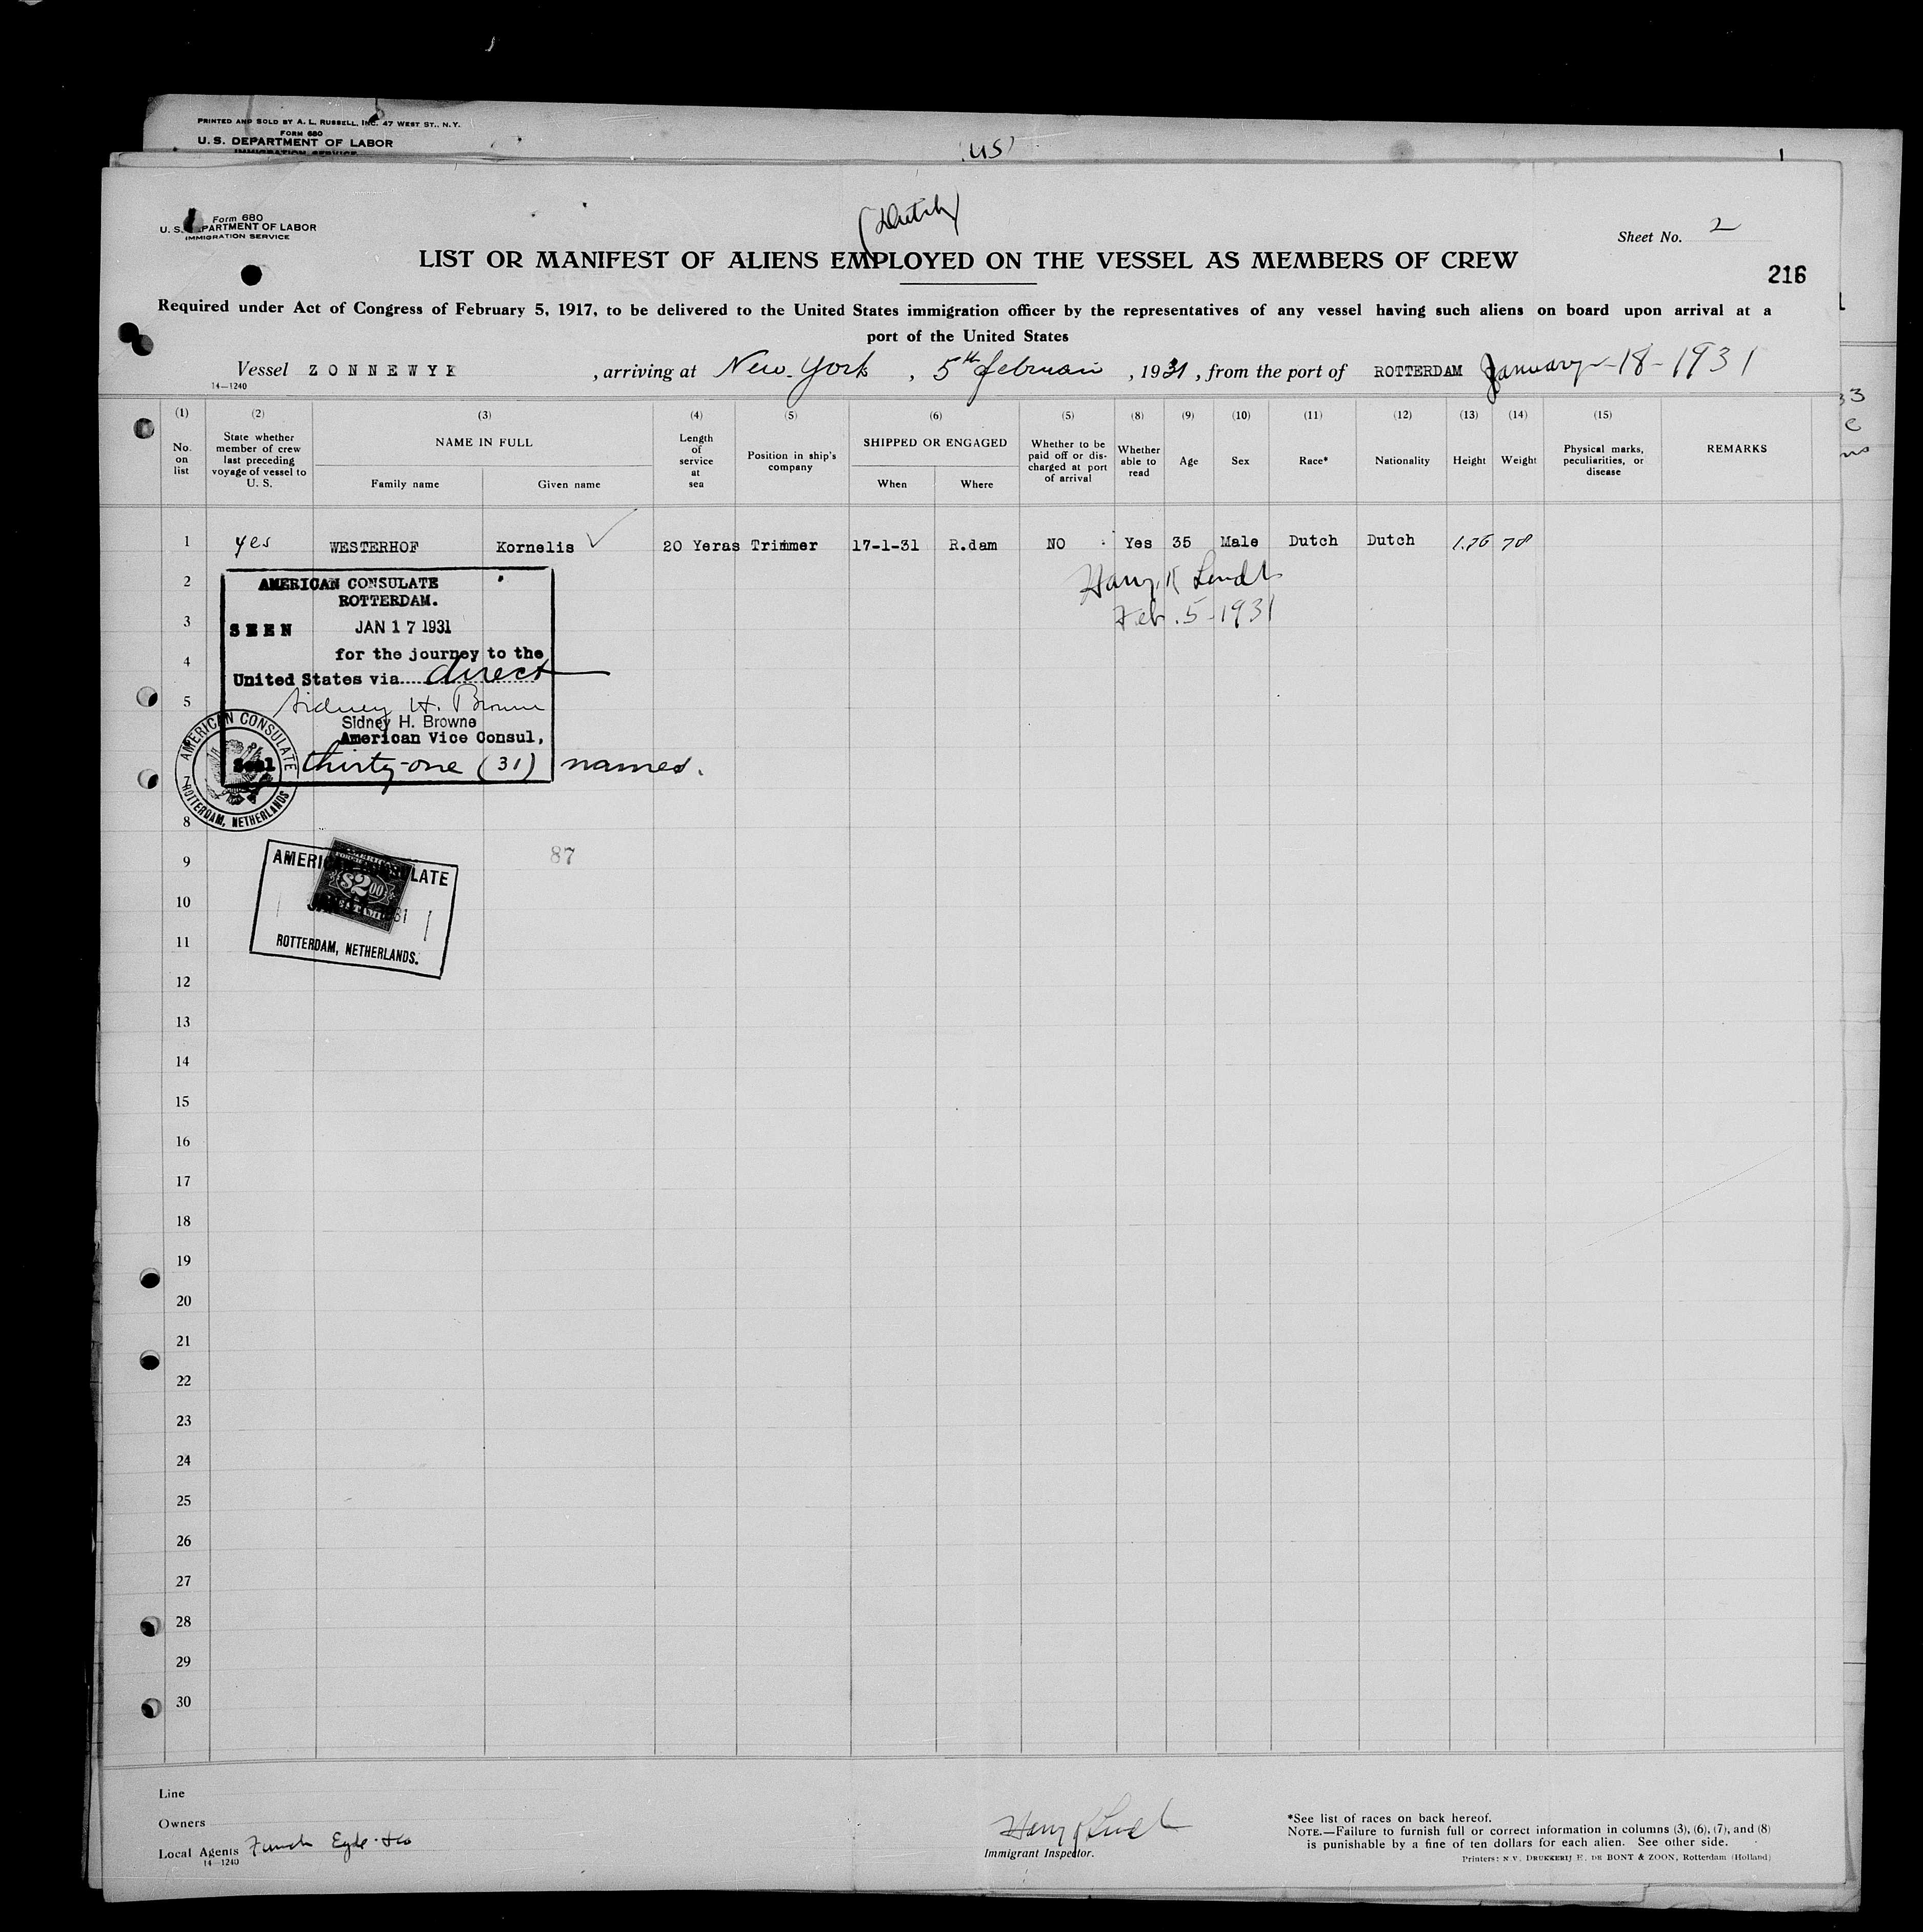 PRINTED AND SOLD BY A. L. RUSSELL, INC. 47 WEST ST., N.Y.
FORM 680
U. S. DEPARTMENT OF LABOR
IMMIGRATION SERVICE
US
Form 680
U. S. DEPARTMENT OF LABOR
IMMIGRATION SERVICE
(Dutch)
Sheet No. 2
LIST OR MANIFEST OF ALIENS EMPLOYED ON THE VESSEL AS MEMBERS OF CREW
216
Required under Act of Congress of February 5, 1917, to be delivered to the United States immigration officer by the representatives of any vessel having such aliens on board upon arrival at a
port of the United States
Vessel ZONNEWYK , arriving at New-York , 5th februari , 1931 , from the port of ROTTERDAM January - 18 - 1931
14—1240
(1) (2) (3) (4) (5) (6) (5) (8) (9) (10) (11) (12) (13) (14) (15)
No. on list
State whether member of crew last preceding voyage of vessel to U. S.
NAME IN FULL
Family name
Given name
Length of service at sea
Position in ship's company
SHIPPED OR ENGAGED
When
Where
Whether to be paid off or discharged at port of arrival
Whether able to read
Age
Sex
Race*
Nationality
Height
Weight
Physical marks, peculiarities, or disease
REMARKS
1 yes WESTERHOF Kornelis 20 Yeras Trimmer 17-1-31 R.dam NO Yes 35 Male Dutch Dutch 1.76 78
2
3
4
5
7
8
9
10
11
12
13
14
15
16
17
18
19
20
21
22
23
24
25
26
27
28
29
30
Feb. 5-1931
AMERICAN CONSULATE
ROTTERDAM.
SEEN JAN 17 1931
for the journey to the
United States via direct
Sidney H. Browne
Sidney H. Browne
American Vice Consul,
Seal thirty-one (31) names.
AMERICAN CONSULATE
ROTTERDAM, NETHERLANDS
87
AMERICAN CONSULATE
$2.00
ROTTERDAM, NETHERLANDS.
Line
Owners
Local Agents Funch Edye & Co
14—1240
Immigrant Inspector.
*See list of races on back hereof.
NOTE.—Failure to furnish full or correct information in columns (3), (6), (7), and (8)
is punishable by a fine of ten dollars for each alien. See other side.
Printers: N.V. DRUKKERIJ F. DE BONT & ZOON, Rotterdam (Holland)